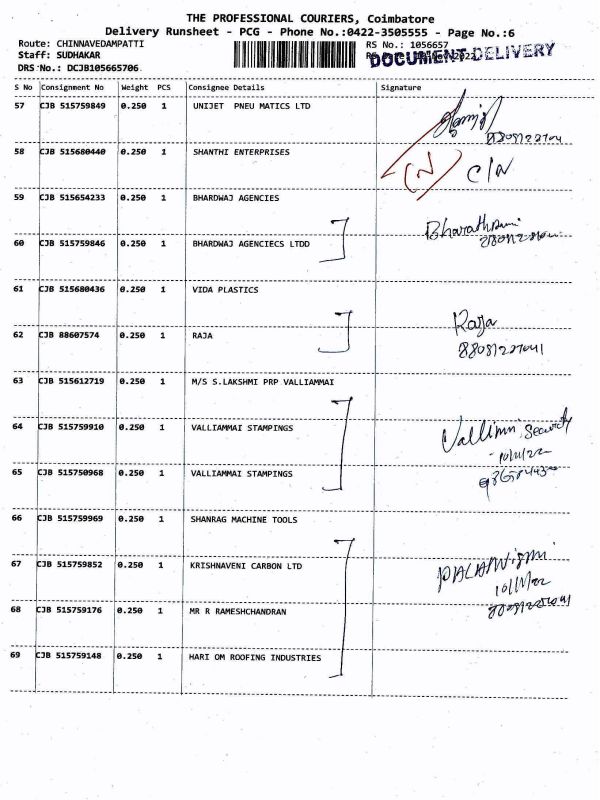 THE PROFESSIONAL COURIERS, Coimbatore
Delivery Runsheet - PCG - Phone No.:0422-3505555 - Page No.:6
Route: CHINNAVEDAMPATTI
RS No.: 1056657
Staff: SUDHAKAR
DOCUMENT DELIVERY
DRS No.: DCJB105665706
S No Consignment No Weight PCS Consignee Details Signature
57 CJB 515759849 0.250 1 UNIJET PNEU MATICS LTD
58 CJB 515680440 0.250 1 SHANTHI ENTERPRISES
59 CJB 515654233 0.250 1 BHARDWAJ AGENCIES
60 CJB 515759846 0.250 1 BHARDWAJ AGENCIECS LTDD
61 CJB 515680436 0.250 1 VIDA PLASTICS
Raja
62 CJB 88607574 0.250 1 RAJA
88081227041
63 CJB 515612719 0.250 1 M/S S.LAKSHMI PRP VALLIAMMAI
64 CJB 515759910 0.250 1 VALLIAMMAI STAMPINGS
Security
10/11/22
65 CJB 515750968 0.250 1 VALLIAMMAI STAMPINGS
66 CJB 515759969 0.250 1 SHANRAG MACHINE TOOLS
67 CJB 515759852 0.250 1 KRISHNAVENI CARBON LTD
10/11/22
68 CJB 515759176 0.250 1 MR R RAMESHCHANDRAN
69 CJB 515759148 0.250 1 HARI OM ROOFING INDUSTRIES